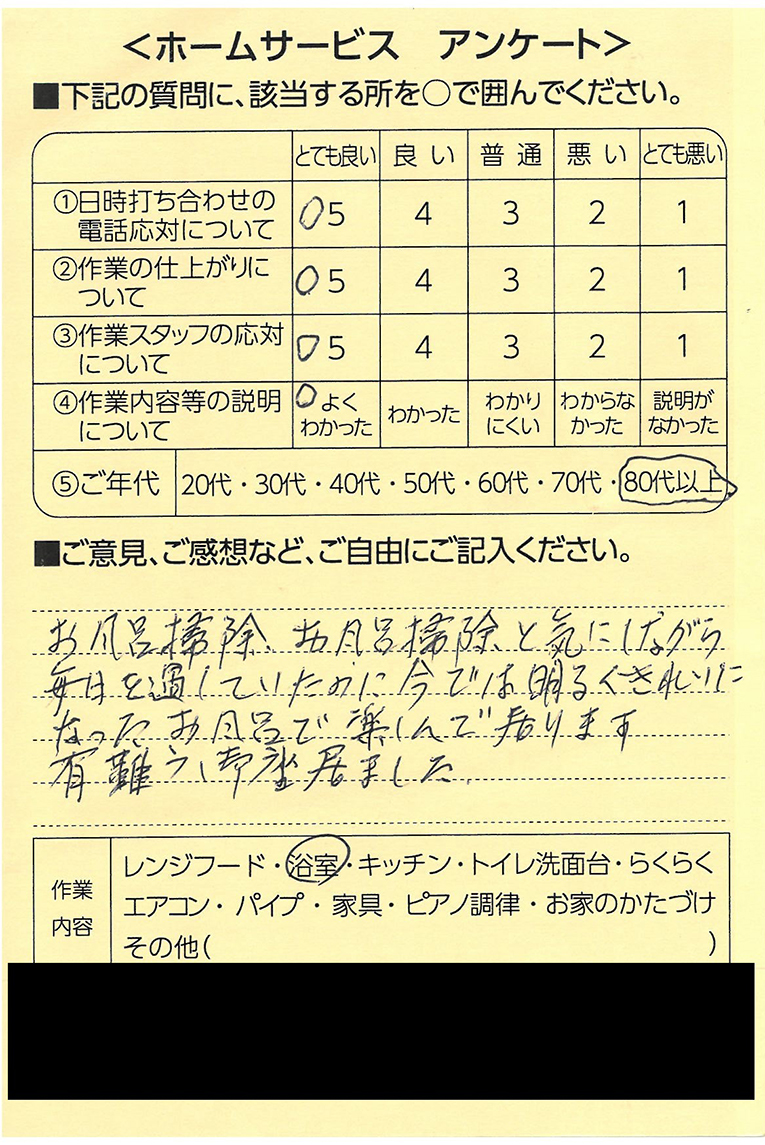 <ホームサービス アンケート>
■下記の質問に、該当する所を○で囲んでください。
とても良い 良い 普通 悪い とても悪い
①日時打ち合わせの
電話応対について 5 4 3 2 1
②作業の仕上がりに
ついて 5 4 3 2 1
③作業スタッフの応対
について 5 4 3 2 1
④作業内容等の説明
について よく
わかった わかった わかり
にくい わからな
かった 説明が
なかった
⑤ご年代 20代・30代・40代・50代・60代・70代・80代以上
■ご意見、ご感想など、ご自由にご記入ください。
お風呂掃除、お風呂掃除、と気にしながら
毎日を過していたのに今では明るくきれいに
なったお風呂で楽しんで居ります
有難う御座居ました。
作業
内容
レンジフード・浴室・キッチン・トイレ洗面台・らくらく
エアコン・パイプ・家具・ピアノ調律・お家のかたづけ
その他( )